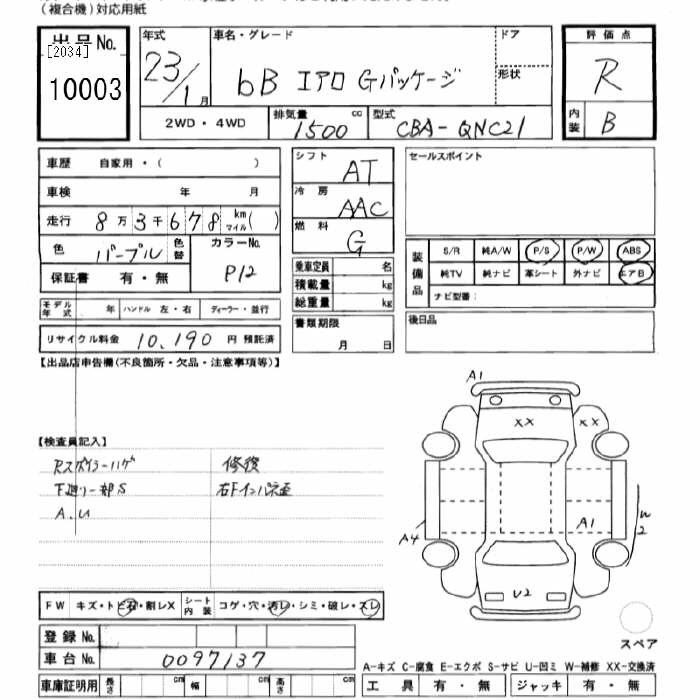 (複合機)対応用紙
出品No.
[2034]
10003
年式
23/1月
車名・グレード
bB エアロ Gパッケージ
ドア
形状
評価点
R
内装
B
2WD・4WD
排気量
1500 cc
型式
CBA-QNC21
車歴 自家用・( )
車検 年 月
走行 8万3千678 km マイル( )
色 パープル 色替
カラーNo.
P12
保証書 有・無
モデル年式 年 ハンドル 左・右 ディーラー・並行
リサイクル料金 10,190 円 預託済
シフト
AT
冷房
AAC
燃料
G
乗車定員 名
積載量 kg
総重量 kg
書類期限
月 日
セールスポイント
装備品
S/R 純A/W P/S P/W ABS
純TV 純ナビ 革シート 外ナビ エアB
ナビ型番:
後日品
【出品店申告欄(不良箇所・欠品・注意事項等)】
【検査員記入】
Rスポイラーハゲ
下廻り一部S
A.U
修復
右Fインパネ歪
A1
XX
XX
A4
A1
W2
U2
スペア
FW キズ・トビ石・割レX シート内装 コゲ・穴・汚レ・シミ・破レ・スレ
登録No.
車台No. 0097137
車庫証明用 長さ cm 幅 cm 高さ cm
A-キズ C-腐食 E-エクボ S-サビ U-凹ミ W-補修 XX-交換済
工具 有・無 ジャッキ 有・無